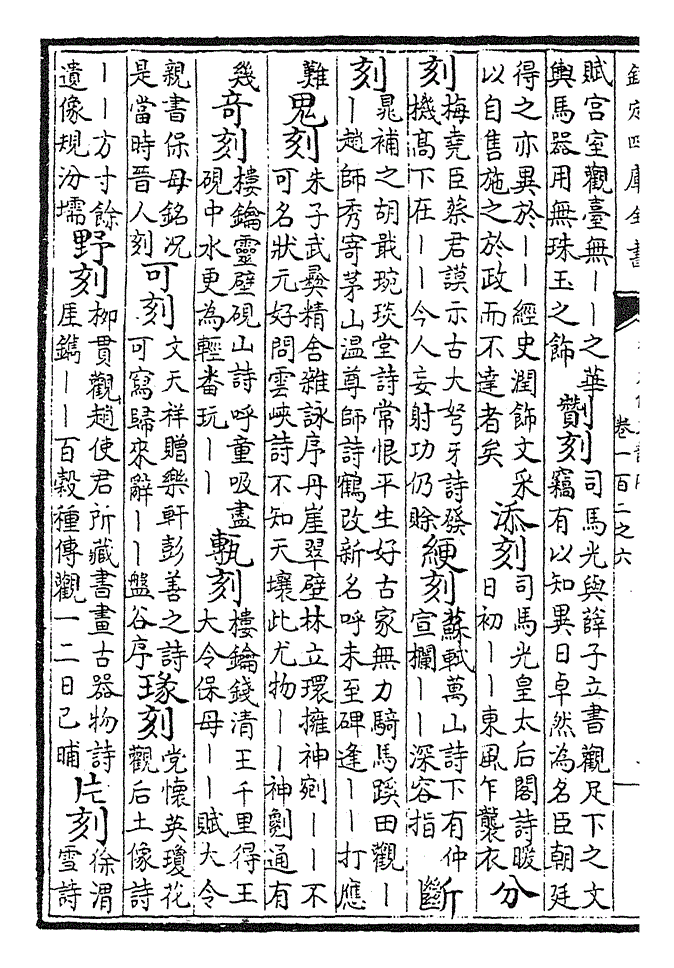 欽定四庫全書
卷一百二之六
賦宮室觀臺無——之華
輿馬器用無珠玉之飾
劗刻
司馬光與薛子立書觀足下之文
竊有以知異日卓然為名臣朝廷
得之亦異於——經史潤飾文采
以自售施之於政而不達者矣
添刻
司馬光皇太后閣詩暖
日初——東風乍襲衣
分
刻
梅堯臣蔡君謨示古大弩牙詩發
機髙下在——今人妄射功仍賖
綆刻
蘇軾萬山詩下有仲
宣欄——深容指
斷
刻
晁補之胡戢琬琰堂詩常恨平生好古家無力騎馬蹊田觀—
—趙師秀寄茅山温尊師詩鶴改新名呼未至碑逢——打應
難
鬼刻
朱子武彝精舍雜詠序丹崖翠壁林立環擁神剜——不
可名狀元好問雲峽詩不知天壤此尤物——神劖通有
幾
奇刻
樓鑰靈壁硯山詩呼童吸盡
硯中水更為輕畨玩——
甎刻
樓鑰錢清王千里得王
大令保母——賦大令
親書保母銘况
是當時晉人刻
可刻
文天祥贈樂軒彭善之詩
可寫歸來辭——盤谷序
瑑刻
党懷英瓊花
觀后土像詩
——方寸餘
遺像規汾壖
野刻
柳貫觀趙使君所藏書畫古器物詩
厓鐫——百榖種傳觀一二日已晡
片刻
徐渭
雪詩